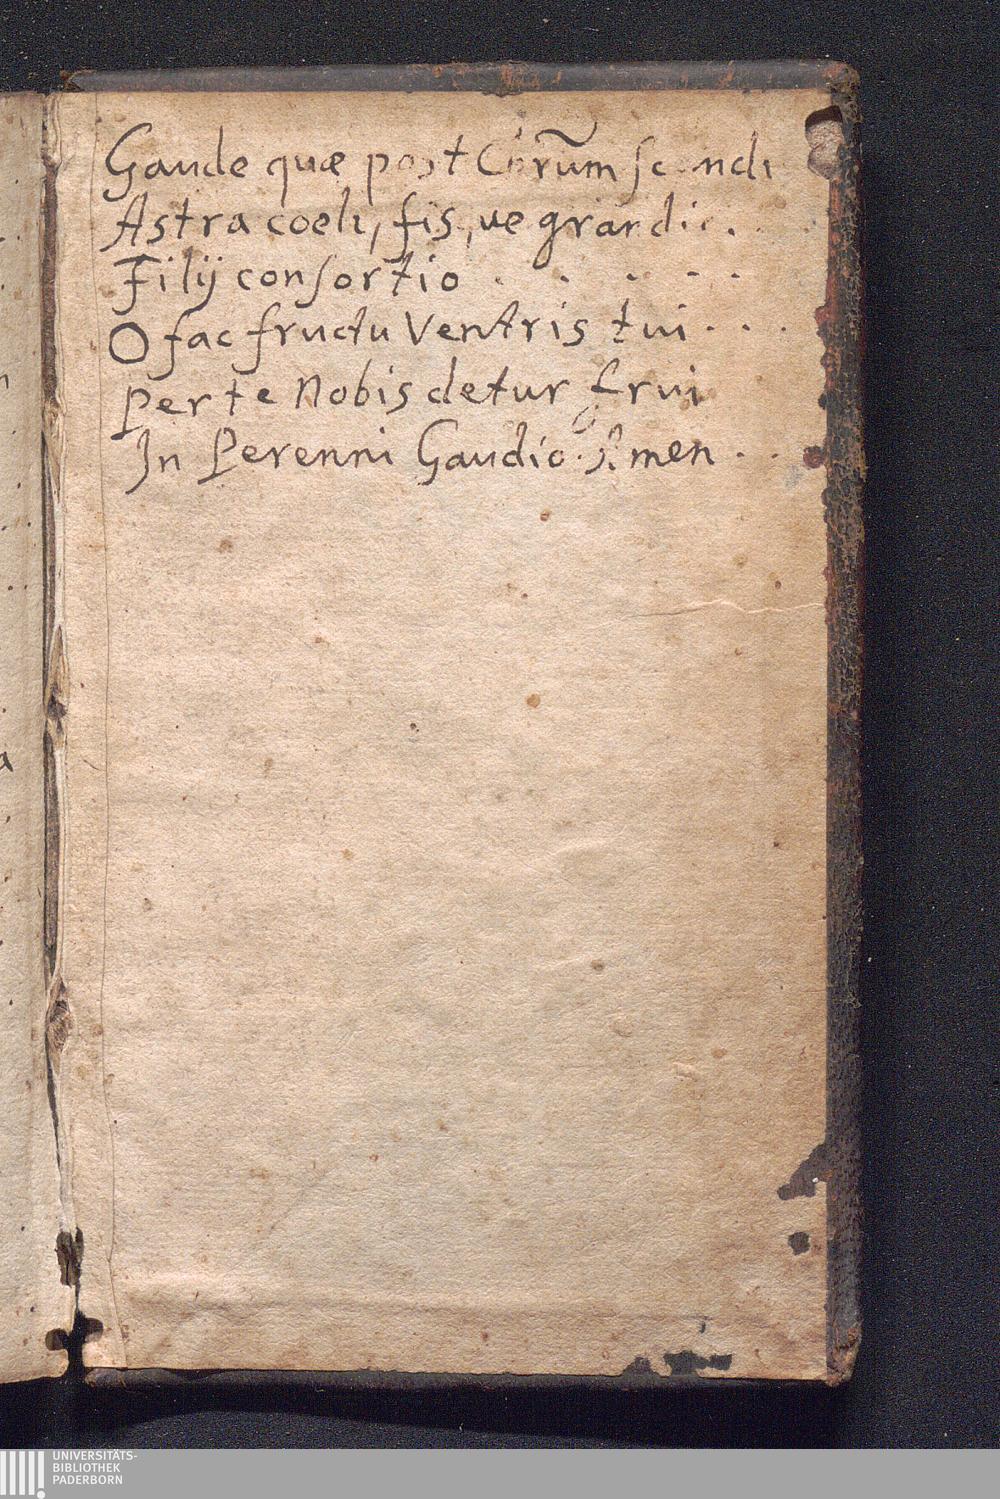 Gaude quæ post Chrūm scandi
Astra coeli, fis, ue grandi. .
Filij consortio . . . - -
O fac fructu Ventris tui . . . .
Per te Nobis detur frui
In Perenni Gaudio. Amen . .
UNIVERSITÄTS-
BIBLIOTHEK
PADERBORN